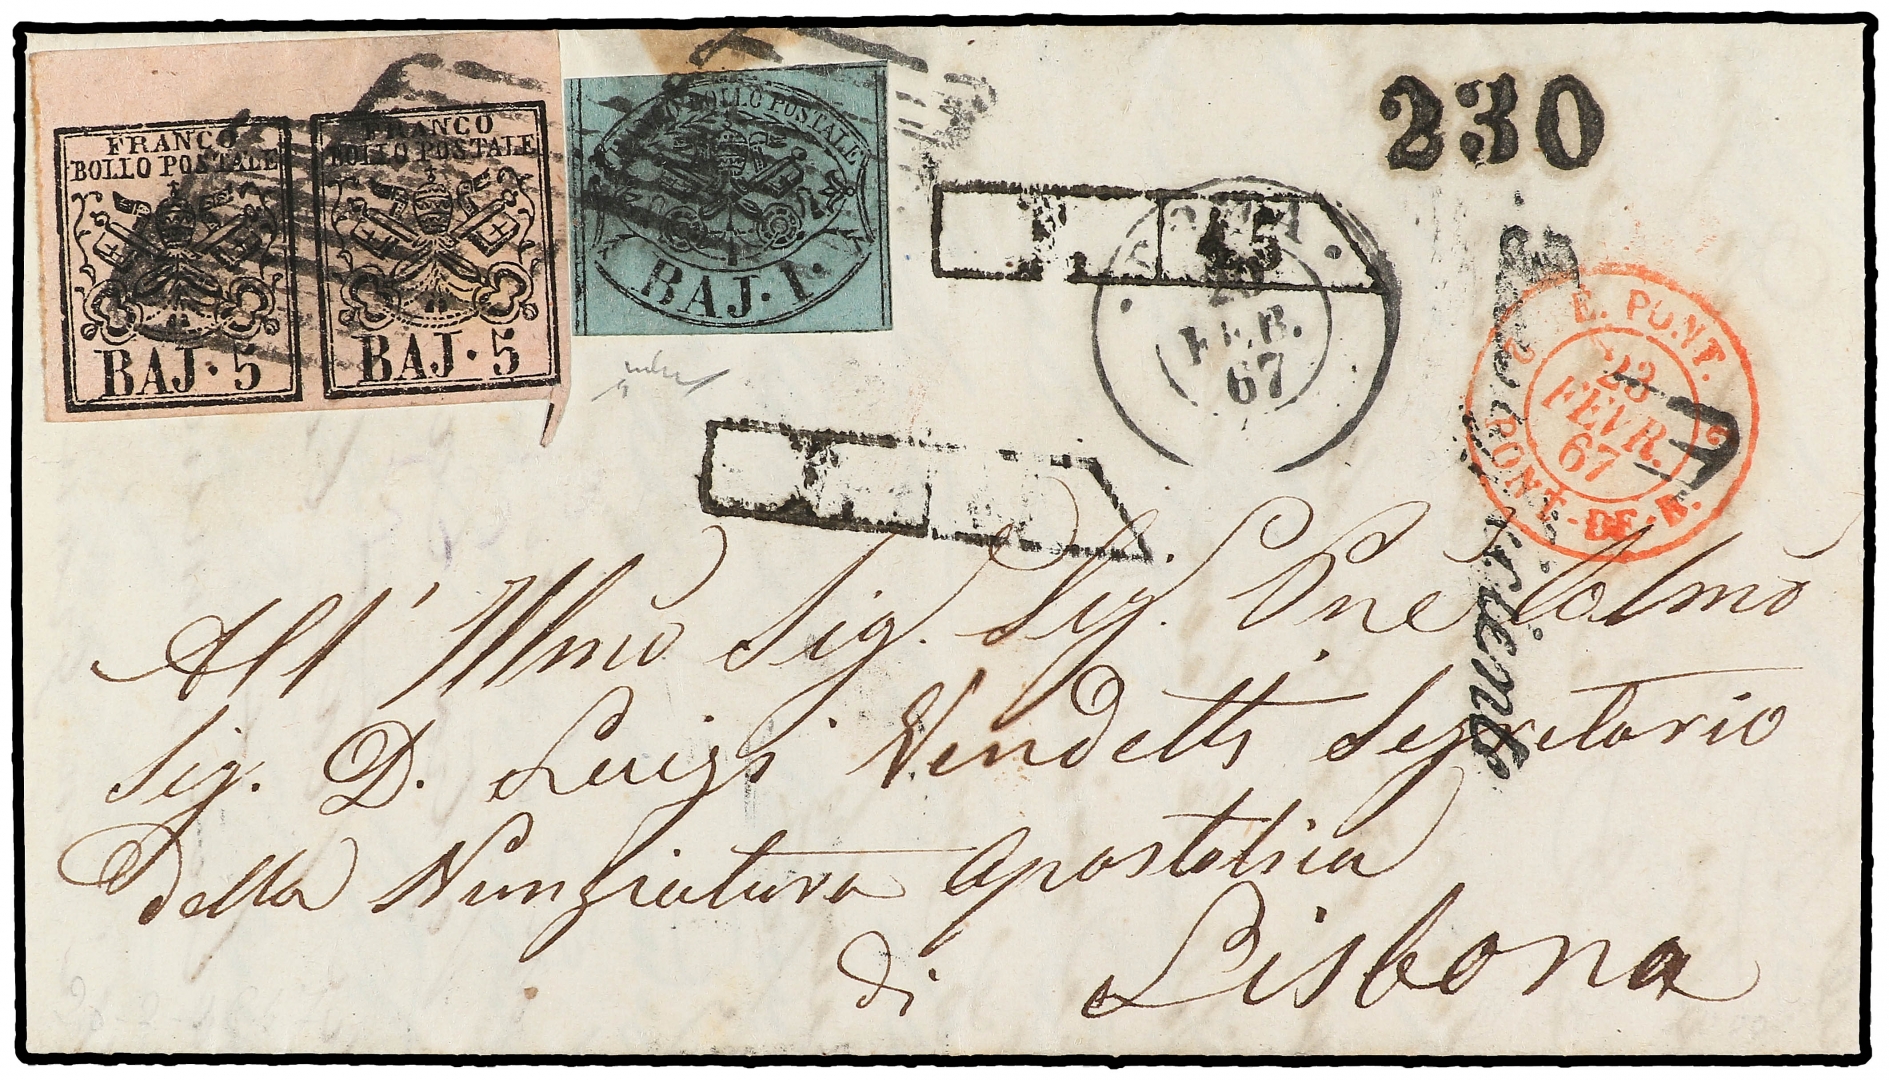 FRANCO
BOLLO POSTALE
BAJ. 5
FRANCO
BOLLO POSTALE
BAJ. 5
BOLLO POSTALE
BAJ. 1.
230
45
ROMA
20
FEB.
67
E. PONT.
2 2
23
FEVR.
67
PONT-DE-B.
All' Illmo Sig. Sig. Pne Colmo
Sig. D. Luigi Vendetti Segretario
della Nunziatura Apostolica
di Lisbona